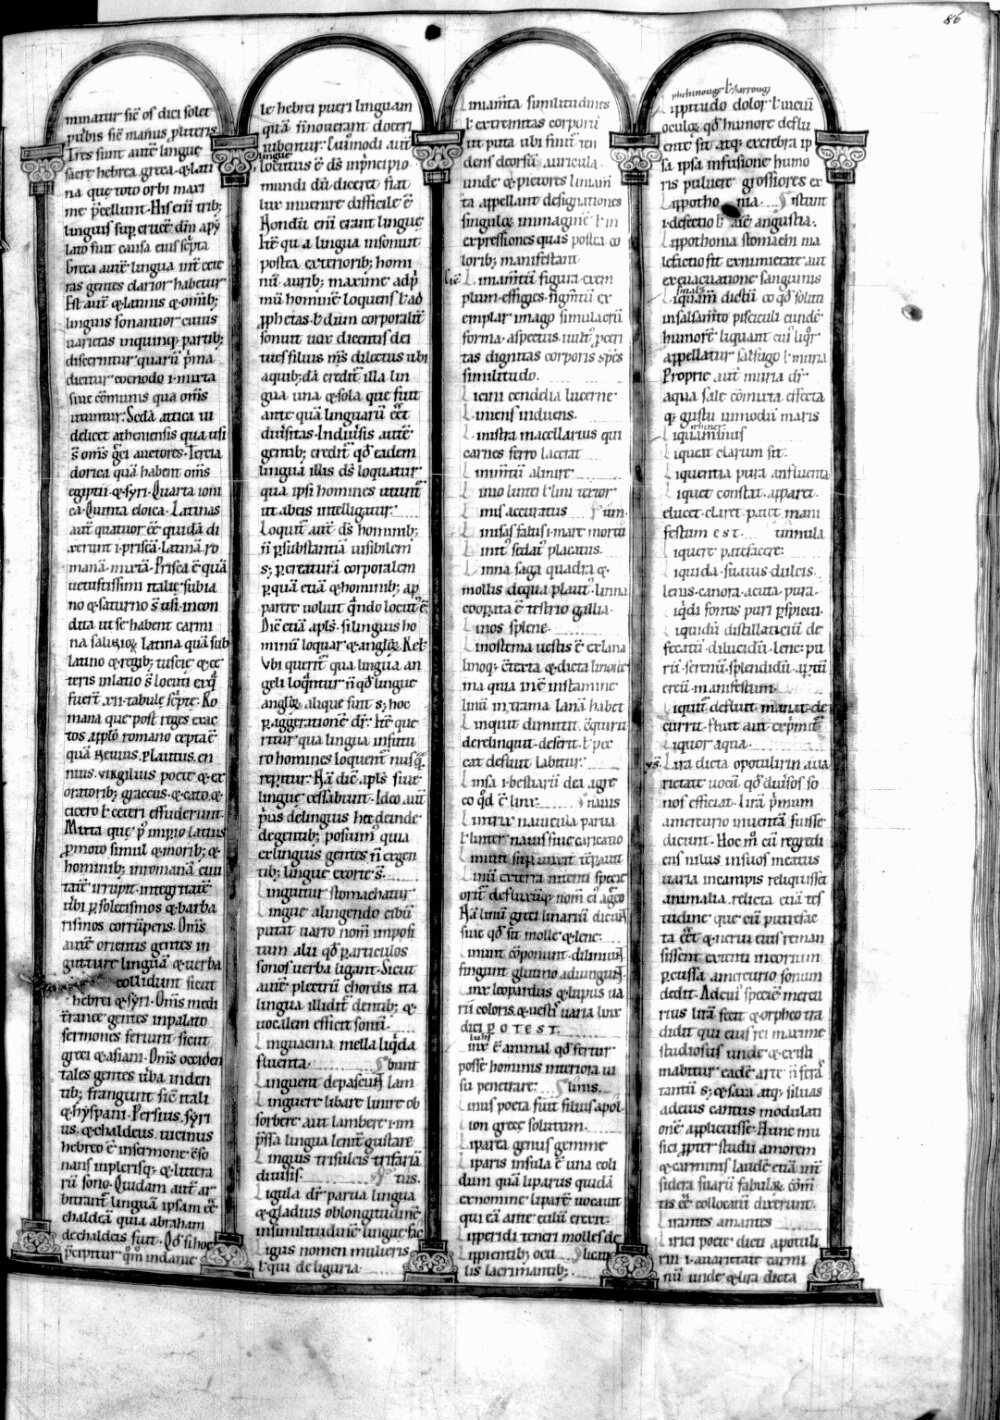 86
minatur sic̄ os dici solet
Tres sunt autē linguę
sacrę hebrea. greca. & lati
na que toto orbi maxi
me p̄cellunt. His eni trib;
linguis sup crucē dn̄i a pyl
lato fuit causa eius sc̄pta
breta autē lingua int̄ cete
ras gentes clarior habetur
Est aut̄ & latinis & om̄ib;
linguis sonantior cuius
uarietas inquinq; partib;
discernitur quarū p̄ma
dicitur coenodo .i. mixta
siue cōmunis qua om̄s
utuntur. Sc̄da attica ui
delicet atheniensis qua usi
s̄ om̄s greci auctores. Tercia
dorica quā habent om̄s
egyptii & syri. Quarta ioni
ca. Quinta eloica. Latinas
aut̄ quatuor eē quidā di
xerunt .i. priscā. Latinā. ro
manā. mixtā. Prisca ē quā
uetustissimi italię sub ia
no & saturno s̄ usi. incon
dita ut se habent carmi
na saliorū. Latina quā sub
latino & regib; tuscię & ce
teris in latio s̄ locuti ex q̄
fuer̄t .xii. tabulę sc̄ptę. Ro
mana que post reges exac
tos a pplo romano cepta ē
quā neuius. plautus. en
nius. virgilius poetę & ex
oratorib; graccus. & cato. &
cicero ł ceteri effuderunt.
Mixta que p̄ impio latius
p̄moto simul & morib; &
hominib; in romanā ciui
tatē irrupit. integritatē
ūbi p̱ solecismos & barba
rismos corrūpens. Om̄s
autē orientis gentes in
gutture linguā & uerba
collidunt sicut
hebrei & syri. Om̄s medi
t̄ranee gentes in palato
sermones feriunt sicut
greci & asiani. Om̄s occiden
tales gentes ūba in den
tib; frangunt sic̄ itali
& hyspani. Persius. syri
us. & chaldeus. uicinus
hebreo ē in sermone. & so
nans in plerisq; & littera
rū sono. Quidam aut̄ ar
bitrant̄ linguā ipsam eē
chaldeā quia abraham
de chaldeis fuit. Qd̄ si hoc
p̄cipitur q̄m in danie
le hebrei pueri linguam
quā n̄ nouerant doceri
iubentur. Cuimodi aut̄
linguę
locutus ē ds̄ in p̄ncipio
mundi dū diceret fiat
lux inuenire difficile ē
Nondū eni erant linguę
Itē qua lingua insonuit
postea exteriorib; homi
nū aurib; maxime ad p̄
mū hominē loquens ł ad
p̄phetas. ł dum corporalit̄
sonuit uox dicentis dei
tu es filius m̄s dilectus ubi
a quib;dā credit̄ illa lin
gua una & sola que fuit
ante quā linguarū eēt
diuersitas. In diuersis autē
gentib; credit̄ qd̄ eadem
lingua illis ds̄ loquatur
qua ipsi homines utunt̄
ut ab eis intelligatur
Loquit̄ aut̄ ds̄ hominib;
n̄ p̱ substantiā inuisibilem
s; p̱ creaturā corporalem
p̱ quā etiā & hominib; ap
parere uoluit q̄ndo locut̄ ē
Dic̄ etiā apłs. si linguis ho
minū loquar & anglorū &ct
Vbi querit̄ qua lingua an
geli loq̄ntur n̄ qd̄ linguę
anglorū alique sint s; hoc
p̱ aggerationē dr̄. Itē quę
ritur qua lingua in futu
ro homines loquent̄ nusq̄
rep̱itur. Nā dic̄ apłs siue
linguę cessabunt. Ideo aut̄
p̱us de linguis hec deinde
de gentib; posuim; quia
ex linguis gentes n̄ ex gen
tib; linguę exorte s̄.
Linguitur stomachatur
Lingue a lingendo cibū
putat uarro nom̄ imposi
tum. alii qd̄ p̱ articulos
sonos uerba ligant. Sicut
autē plectrū chordis ita
lingua illidit̄ dentib; &
uocalem efficit sonū.
Linguacina mella liq̄da
fluenta. bunt
Linguent depascunt̄ lam
Linguere libare linire ob
sorbere aut lambere .i. im
p̄ssa lingua lenit̄ gustare
Linguis trisulcis trifariā
diuisis. tus.
Ligula dr̄ parua lingua
& gladius oblongitudinē
in similitudinē linguę fac
Ligus nomen mulieris
ł qui de liguria.
Liniam̄ta similitudines
ł extremitas corporū
ut puta ubi finit̄ ten
dens deorsū auricula.
unde & pictores liniam̄
ta appellant designationes
singulorū immaginē ł in
expressiones quas postea co
lorib; manifestant
Liniam̄tū figura. exem
plum. effigies. figm̄tū ex
emplar imago simulacrū
forma. aspectus. uult; p̱cri
tas dignitas corporis sp̄cs
similitudo.
Licini cendelia lucerne
Liniens induens.
Linistra macellarius qui
carnes ferro lacerat
Linimtū a linire.
Linio lintei ł lini textor
Linis accuratus
Linisas fatus .i. mare mortū
Linit; sedat; placatus.
Linna saga quadra &
mollis de qua plaut̄. linna
coop̱ta ē testrio gallia.
Linos splene.
Linostema uestis ē ex lana
linoq; cōtexta & dicta linoste
ma quia in ea ē in stamine
linū in trama lanā habet
Linquit dimittit. & querit
derelinquit. deserit. ł pec
cat desinit labitur.
Linsa .i. bestiarū dea. igre
co qd̄ ē linx. nauis
Lintrix nauicula parua
orū. de fluuiūq; nom̄ ei ag̅co
Nā linū greci linariū dicunt̄
siue qd̄ sit molle & lene.
Linunt cōponunt. diliniunt̄
fingunt glutino adiungunt̄
Linx leopardus & lupus ua
rii coloris. & uestis uaria linx
dici P O T E S T.
Linx ē animal qd̄ fertur
posse hominis interiora ui
su penetrare. linis.
Linus poeta fuit filius apol
lon grece solutum.
Liparia genus gemme
Liparis insula ē una coli
dum quā liparus quidā
ex nomine liparē uocauit
qui eā ante culiū creuit.
Lipperidi teneri molles de
Lippientib; ocu licuis
lis lacrimantib;
Lippitudo dolor ł uiciū
oculorū qd̄ humore deflu
ente sit atq; exerbra ip
sa ipsa infusione humo
ris puluere grossiores ex
Lippotho mia. istunt
.i. defectio ł aīe angustia.
Lippothomia stomachi ma
lefactio fit ex nimietate aut
ex euacuatione sanguinis
Liquam̄ dictū eo qd̄ soluti
in salsam̄to pisciculi eundē
humorē liquant cui; liq̄r
appellatur salsugo ł muria
Proprie aut̄ muria dr̄
aqua sale cōmixta effecta
& gustu in modū maris
Liquaminus
Liqueat clarum sit.
Liquentia pura anfluenta
Liquet constat. apparet.
elucet. claret. patet. mani
festum e s t. inmula
Liquere patefacere.
Liquida. suauis. dulcis.
lenis. canora. acuta. pura.
Liq̄di fontis puri p̱spicui.
Liquidū distillaticiū. de
fecatū. dilucidū. lene. pu
rū. serenū. splendidū. ap̱tū
certū. manifestum.
Liquit̄ defluit. manat. de
currit. fluit aut exp̄mit̄
Liquor aqua.
Lira dicta apotulirin a ua
rietate uocū qd̄ diūsos so
nos efficiat. lirā p̄mum
a mercurio inuentā fuisse
dicunt. Hoc m̊ cū regredi
ens nilus in suos meatus
uaria in campis reliquisset
animalia. relicta etiā tes
tudine que cū putrefac
ta eēt & nerui eius reman
sissent extenti in corium
p̱cussa a mercurio sonum
dedit. Ad cui; speciē mercu
rius lirā fecit & orpheo tra
didit qui eius rei maxime
studiosus unde & existi
mabitur eadē arte n̄ feras
tantū s; & saxa atq; siluas
ad eius cantus modulati
onē applicuisse. Hunc mu
sici p̄pter studii amorem
& carminis laudē etiā int̄
sidera suarū fabularū cōm̄
tis eē collocatū dixerunt.
Lirantes amantes
Lirici poetę dicti apotuli
rin .i. a uarietate carmi
nū unde & lira dicta